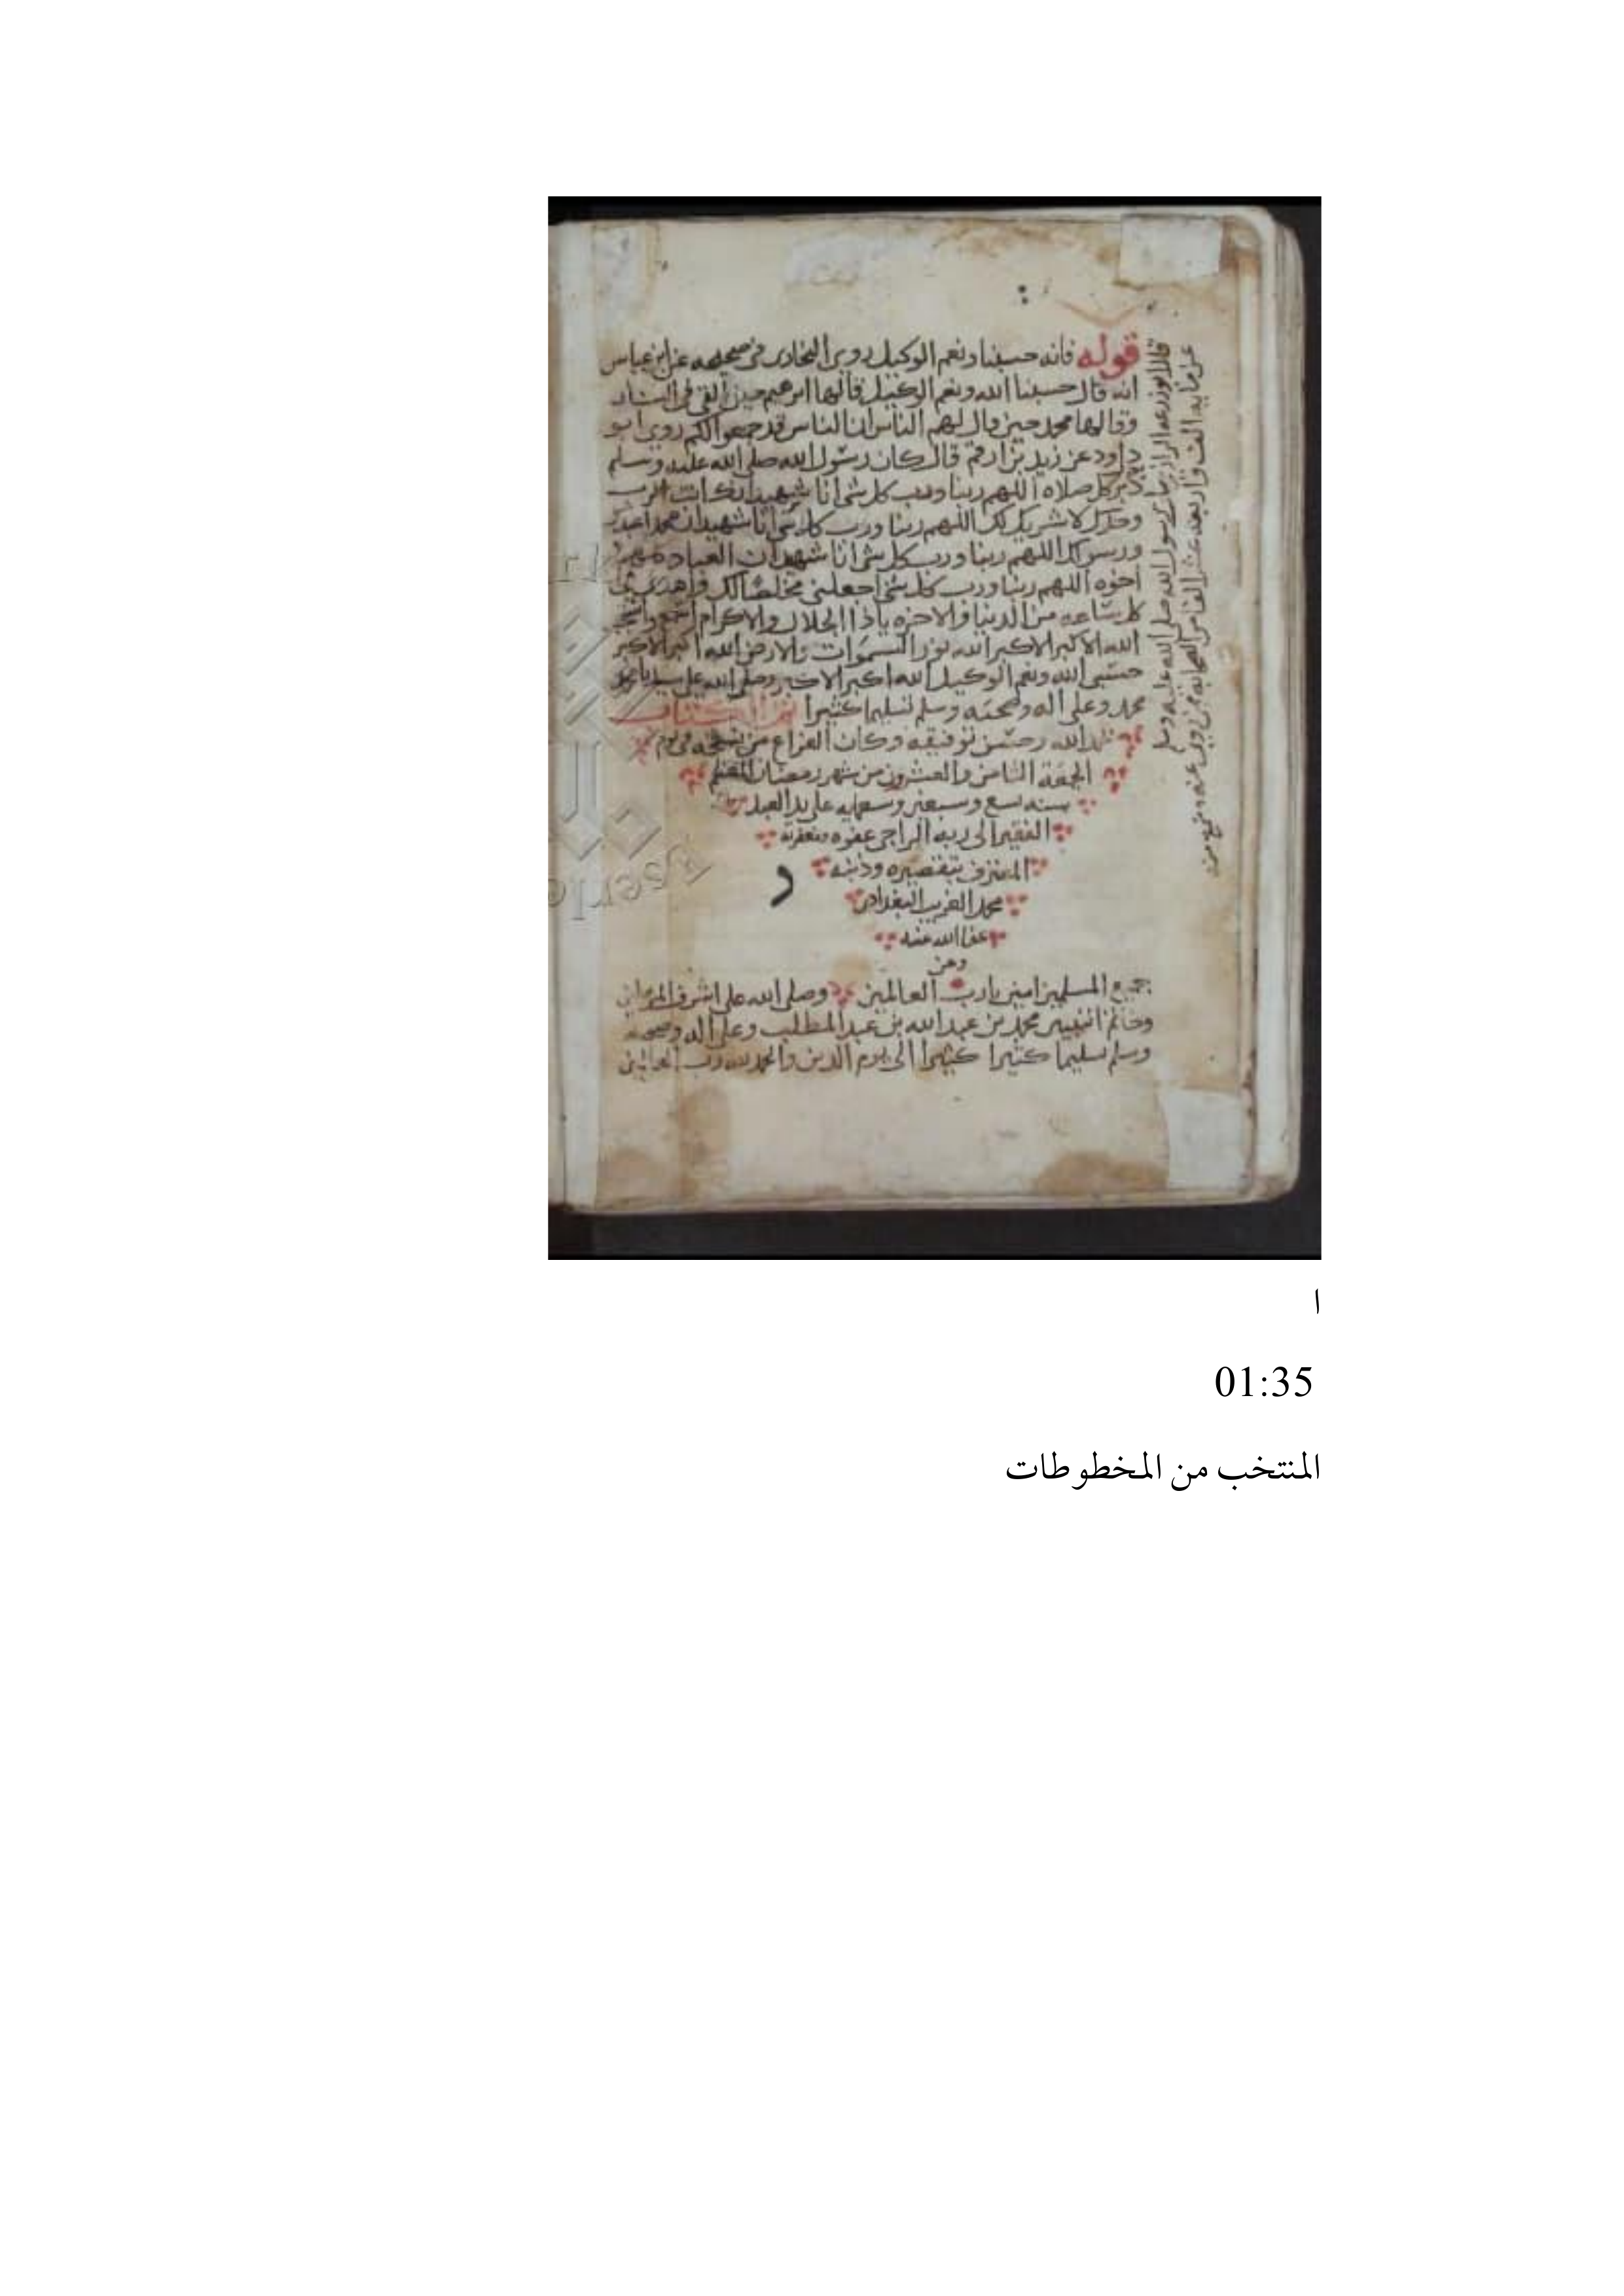 قوله فانه حسبنا ونعم الوكيل روى البخارى فى صحيحه عن ابن عباس
انه قال حسبنا الله ونعم الوكيل قالها ابرهيم حين القي فى النار
وقالها محمد حين قال لهم الناس ان الناس قد جمعوا لكم روى ابو
داود عن زيد بن ارقم قال كان رسول الله صلى الله عليه وسلم
دبر كل صلاه اللهم ربنا ورب كل شى انا شهيد انك انت الرب
وحدك لا شريك لك اللهم ربنا ورب كل شى انا شهيد ان محمدا عبدك
ورسولك اللهم ربنا ورب كل شى انا شهيد ان العباد كلهم
اخوه اللهم ربنا ورب كل شى اجعلنى مخلصا لك واهلى فى
كل ساعه من الدنيا والاخره ياذا الجلال والاكرام اسمع واستجب
الله الاكبر الاكبر الله نور السموات والارض الله اكبر الاكبر
حسبى الله ونعم الوكيل الله اكبر الاكبر وصلى الله على سيدنا
محمد وعلى اله وصحبه وسلم تسليما كثيرا تم الكتاب
بحمد الله وحسن توفيقه وكان الفراغ من نسخه فى يوم
الجمعة الثامن والعشرون من شهر رمضان المعظم
سنه تسع وسبعين وسبعمايه على يد العبد
الفقير الى ربه الراجى عفوه ومغفرته
المعترف بتقصيره وذنبه
محمد الغريب البغدادى
عفا الله عنه
وعن
جميع المسلمين امين يا رب العالمين وصلى الله على اشرف المرسلين
وخاتم النبيين محمد بن عبد الله بن عبد المطلب وعلى اله وصحبه
وسلم تسليما كثيرا كثيرا الى يوم الدين والحمد لله رب العالمين
قال ابو زرعه الرازى مات رسول الله صلى الله عليه وسلم
عن مايه الف واربعه عشر الفا من الصحابه ممن روى عنه وسمع منه
ا
01:35
المنتخب من المخطوطات